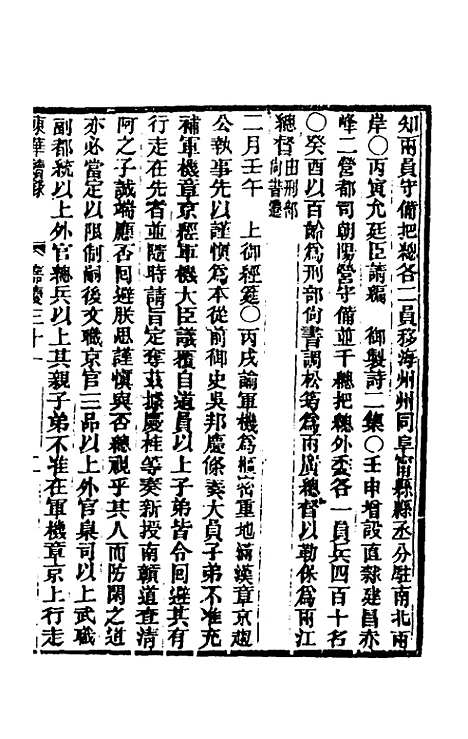 知兩員守備把總各二員移海州州同阜甯縣縣丞分駐南北兩
岸〇丙寅允廷臣請編　御製詩二集〇壬申增設直隸建昌赤
峰二營都司朝陽營守備並千總把總外委各一員兵四百十名
〇癸酉以百齡爲刑部尚書調松筠爲兩廣總督以勒保爲兩江
總督由刑部尚書遷
二月壬午　上御經筵〇丙戌諭軍機爲樞密重地滿漢章京趨
公執事先以謹慎爲本從前御史吳邦慶條奏大員子弟不准充
補軍機章京經軍機大臣議覆自道員以上子弟皆令回避其有
行走在先者並隨時請旨定奪茲據慶桂等奏新授南贛道查清
阿之子誠端應否回避朕思謹慎與否總視乎其人而防閑之道
亦必當定以限制嗣後文職京官三品以上外官臬司以上武職
副都統以上外官總兵以上其親子弟不准在軍機章京上行走
東華續錄　嘉慶三十一　二